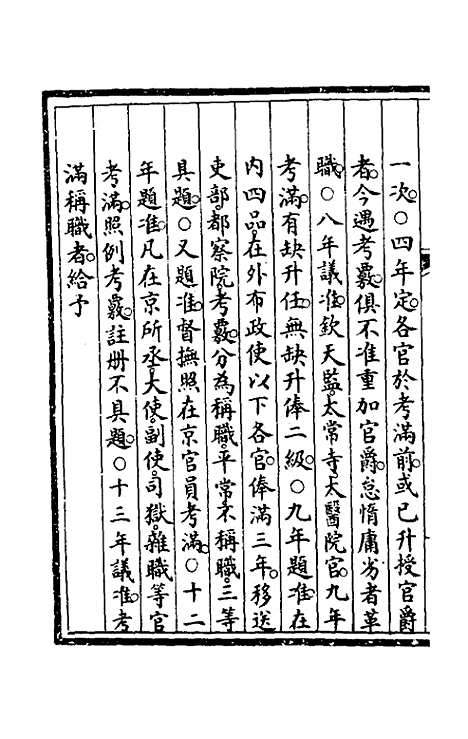 一次。○四年定。各官於考滿前。或已升授官爵
者。今遇考覈。俱不准重加官爵。怠惰庸劣者革
職。○八年議准。欽天監。太常寺。太醫院官。九年
考滿。有缺升任。無缺升俸二級。○九年題准。在
內四品。在外布政使以下各官。俸滿三年。移送
吏部。都察院。考覈。分為稱職。平常。不稱職。三等
具題。○又題准。督撫照在京官員考滿。○十二
年題准。凡在京所丞。大使。副使。司獄。雜職等官
考滿。照例考覈。註册不具題。○十三年議准。考
滿稱職者。給予